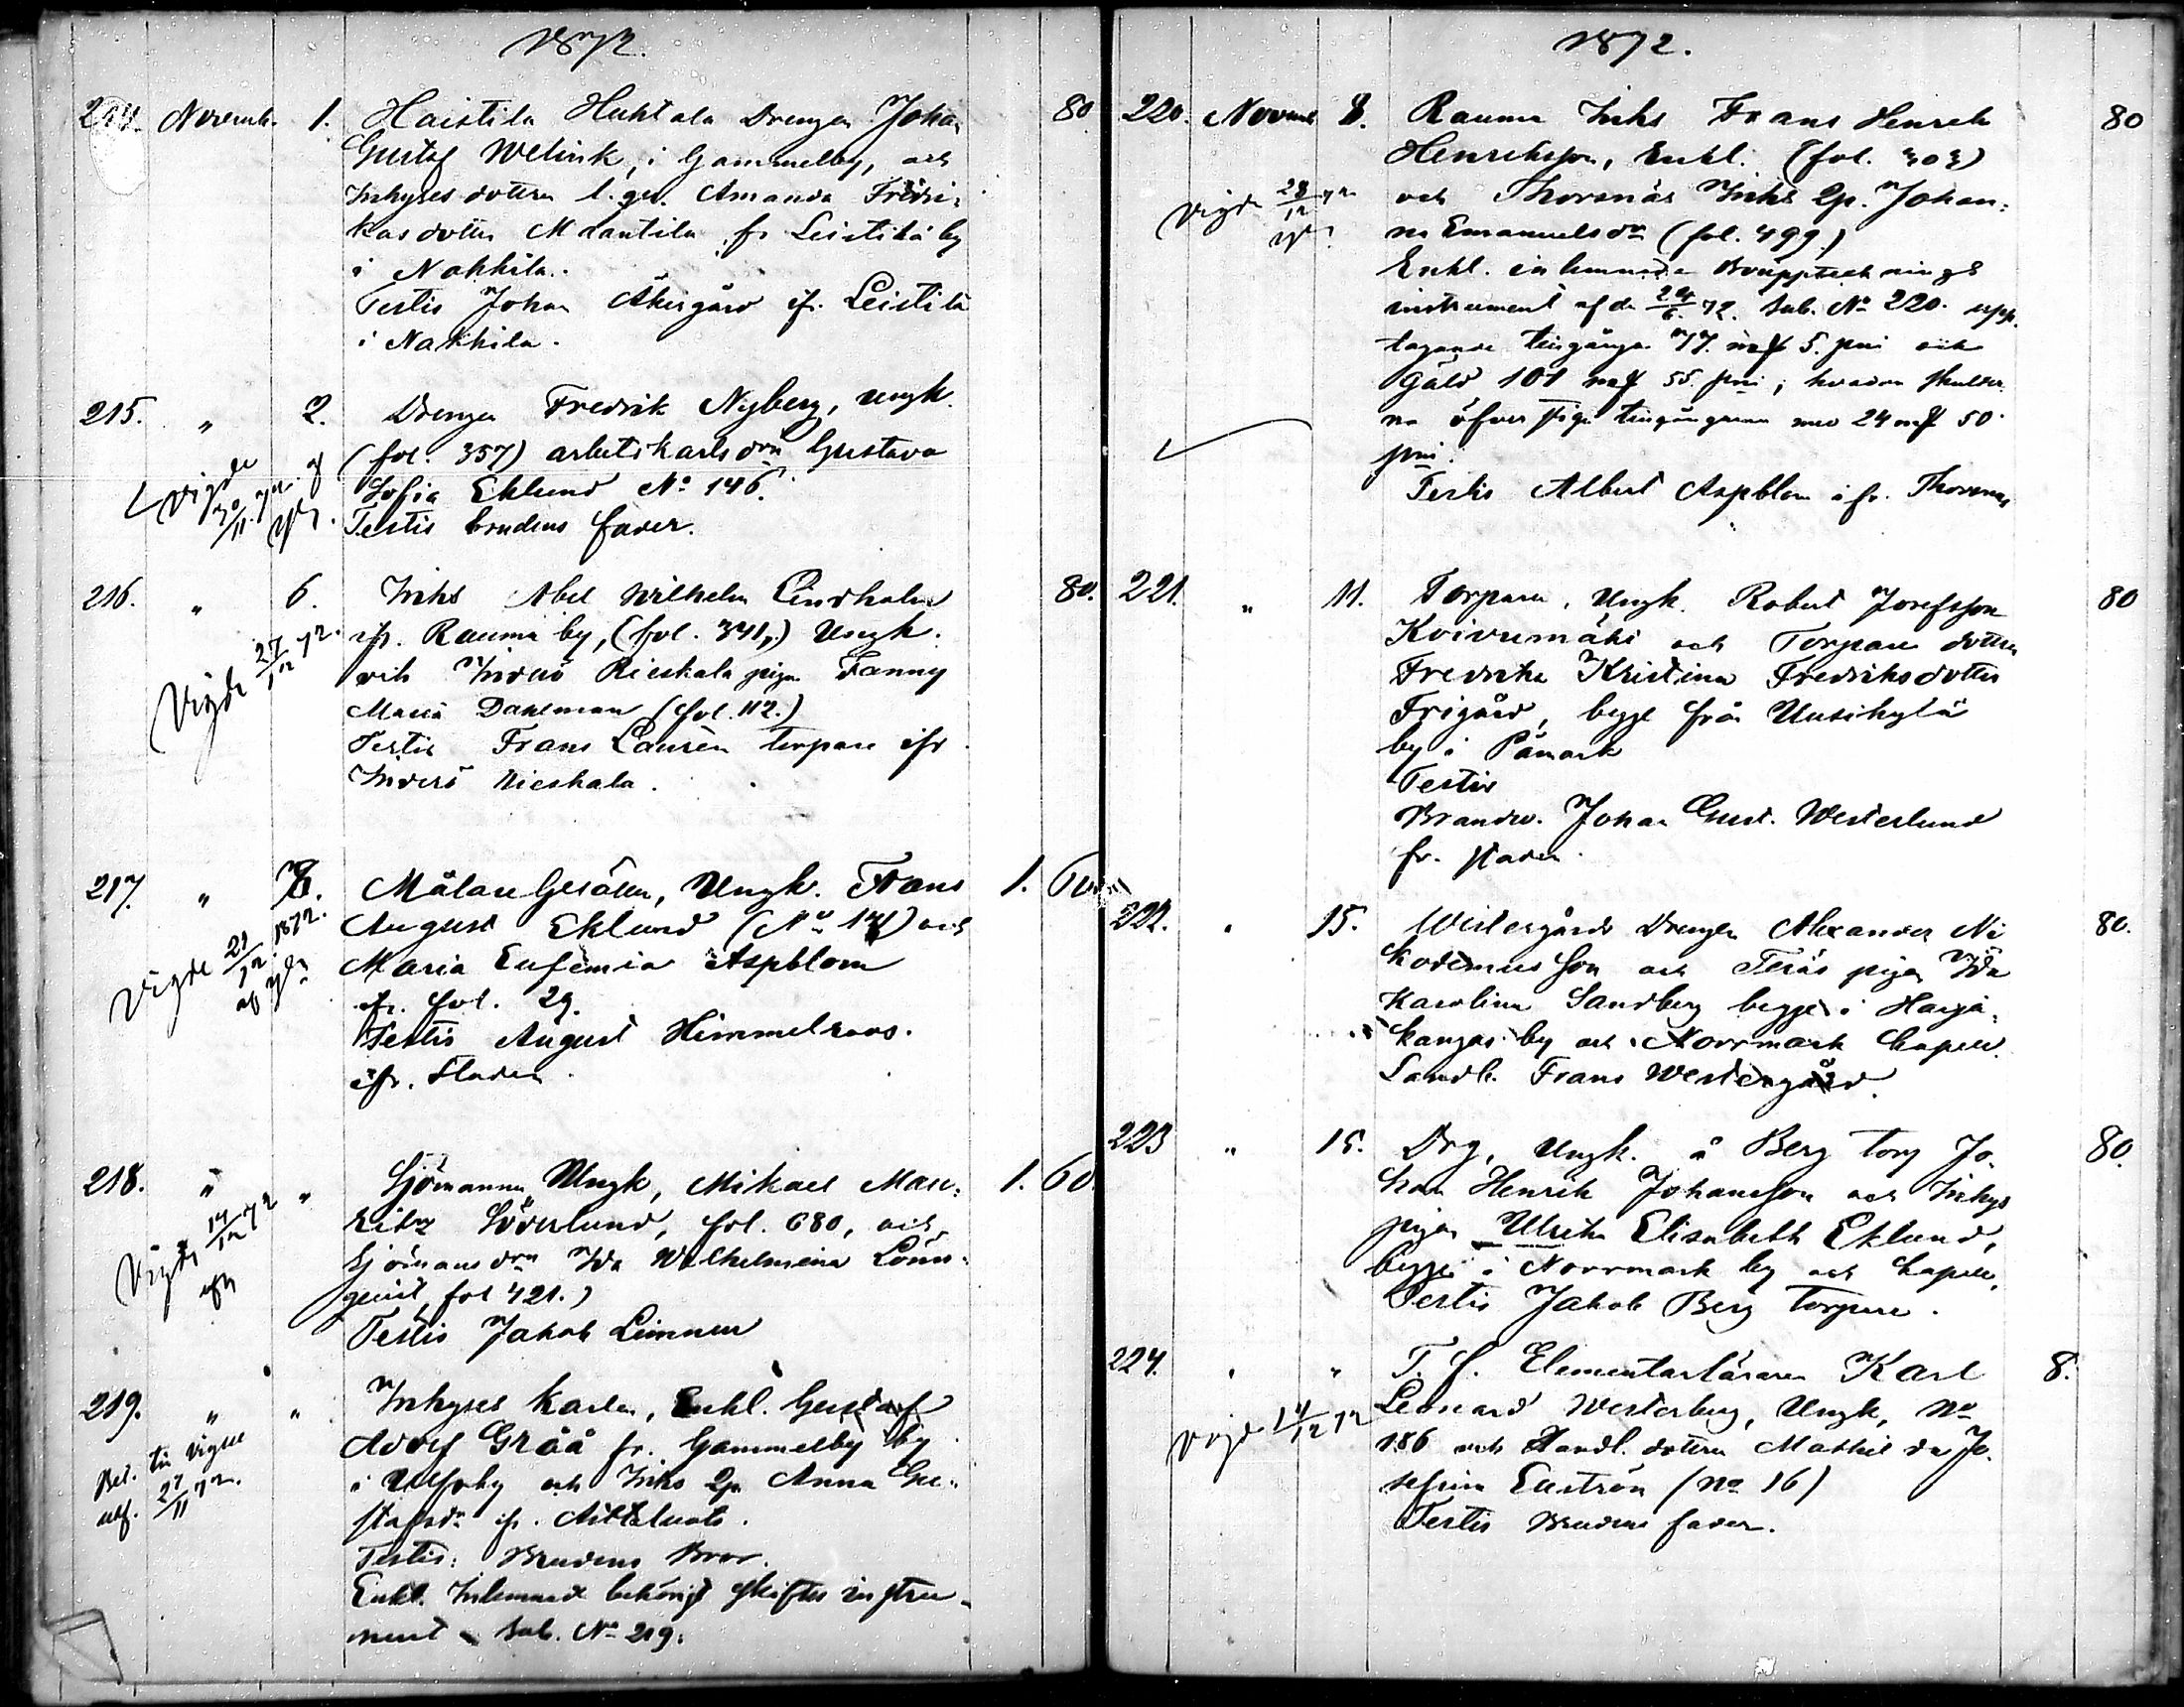 1872.
214. Novemb. 1. Haistila Huhtala Drengen Johan 80
Gustaf Welink, i Gammelby, och
Inhyses dottren l. gv. Amanda Fredri-
kasdotter Maantila fr Leistilä by
i Nakkila.
Testis Johan Åkergård ifr. Leistilä
i Nakkila.
215. " 2. Drengen Fredrik Nyberg, ungk.
(fol. 357) arbetskarlsdrn Gustava
Vigde 30/11 72 af
Sofia Eklund No 146.
Testis brudens fader.
216. " 6. Inhs Abel Wilhelm Lindholm 80.
ifr. Rauma by, (fol. 341,) Ungk.
Vigde 27/12 72.
och Inderö Rieskala pigan Fanny
Maria Dahlman (fol. 112.)
Testis Frans Laurèn torpare ifr
Inderö Rieskala.
217. " 8. Målare Gesällen, Ungk. Frans 1. 60
August Eklund (No 14) och
Vigde 21/12 1872.
Maria Eufemia Aspblom
fr. fol. 29.
Testis August Himmelroos.
ifr. Staden.
218. " " Sjömannen Ungk, Mikael Mau- 1. 60
ritz Söderlund, fol. 680, och
Vigde 14/12 72
Sjömansdrn Ida Wilhelmina Lönn-
quist, fol 421.)
Testis Jakob Limnen
219. " " Inhyses karlen, Enkl. Gustaf
Adolf Gråå fr. Gammelby by
Bet. til vigsel
utf. 27/11 72.
i Ulfsby och Inhs 2p Anna Gu-
stafsdr ifr. Aittaluoto.
Testis: Brudens Bror.
Enkl. Inlemnadt behörigt skiftes instru-
ment sub. No 219.
1872.
220. Novemb 8. Rauma Inhs Frans Henrik 80
Henriksson, Enkl. (fol. 303)
Vigde 28/12 72
och Thorsnäs Inhs 2p. Johan-
na Emanuelsdr (fol. 499.)
Enkl. inlemnade Bouppteknings
instrument af den 24/6 72. sub. No 220. upp-
tagande tingångar 77. mf 5. pni och
Gäld 101 mf 55. pni; hvadan skulder-
na öfverstiga tingångarna med 24 mf 50
pni.
Testis Albert Aspblom ifr. Thorsnäs
221. " 11. Torparen, Ungk. Robert Josefsson 80
Koivumäki och Torpare dottren
Fredrika Kristina Fredriksdotter
Frigård, begge från Uusikylä
by i Påmark
Testis
Brandv. Johan Gust. Westerlund
fr. staden.
222. " 15. Westergårds Drengen Alexander Ni- 80.
kodemusson och Teräs pigan Ida
Karolina Sandberg begge i Harja-
kangas by och Norrmark Capell.
Landb. Frans Westergård.
223 " 15. Drg, Ungk. å Berg torp Jo- 80.
han Henrik Johansson och Inhys
pigan Ulrika Elisabeth Eklund,
begge i Norrmark by och Capell.
Testis Jakob Berg Torpare.
224. " " T. f. Elementarläraren Karl 8.
Leonard Westerberg, Ungk, No
Vigde 14/12 72
186 och Handl. dottren Mathilda Jo-
sefina Enström (No 16)
Testis Brudens fader.